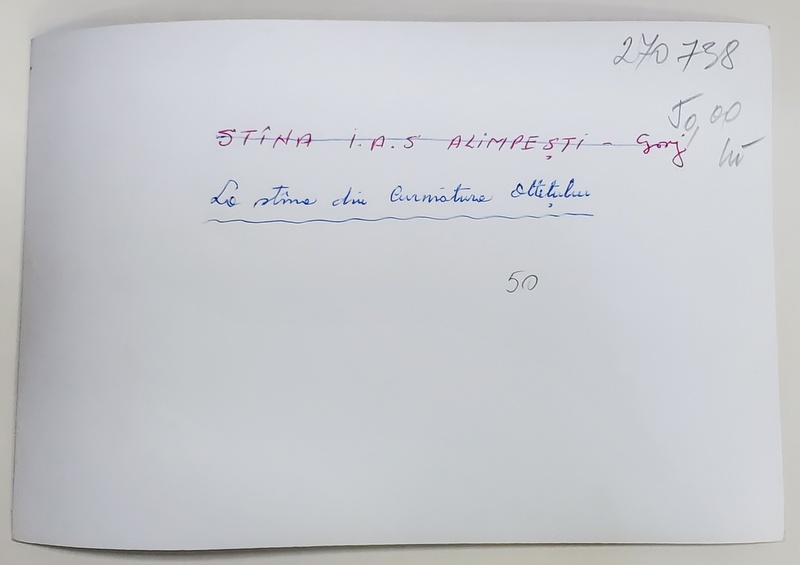 270 738
50,00
lei
STÎNA I.A.S ALIMPEȘTI - Gorj
La stîna din Curmătura Oltețului
50